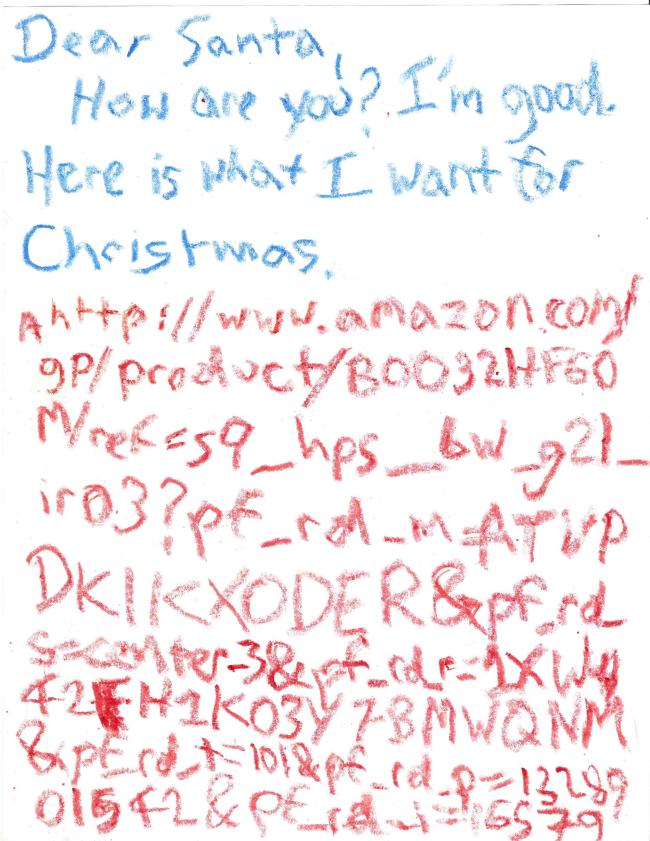 Dear Santa,
How are you? I'm good.
Here is what I want for
Christmas.
A http://www.amazon.com/
gp/product/B0032HF60
M/ref=s9_hps_bw_g21_
ir03?pf_rd_m=ATVP
DKIKX0DER&pf_rd_
s=center-3&pf_rd_r=1XWW
42FH1K03Y7BMWQNM
&pf_rd_t=101&pf_rd_p=13289
01542&pf_rd_i=16579